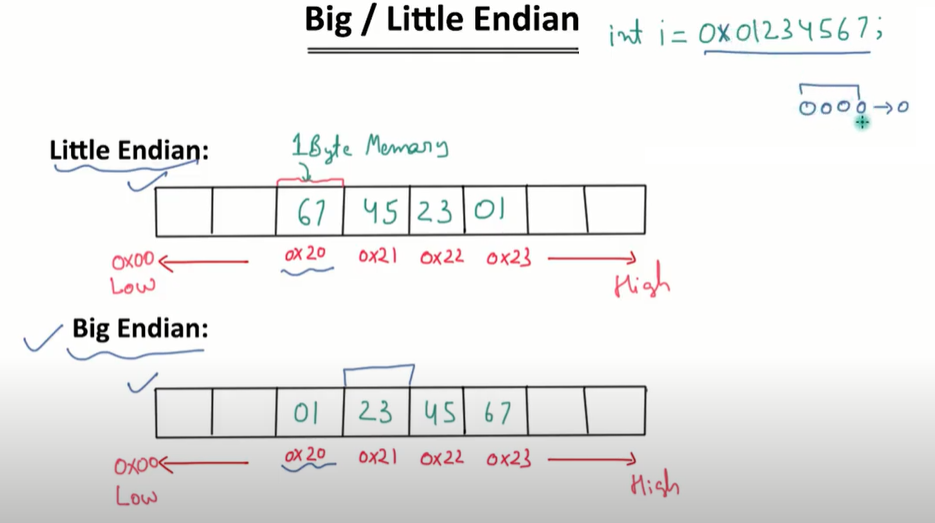 Big / Little Endian
int i = 0x01234567;
0000→0
Little Endian:
1Byte Memary
67 45 23 01
0x00 0x20 0x21 0x22 0x23
Low High
Big Endian:
01 23 45 67
0x00 0x20 0x21 0x22 0x23
Low High